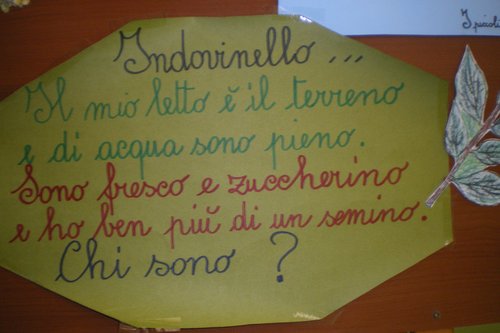 Indovinello ...
Il mio letto è il terreno
e di acqua sono pieno.
Sono fresco e zuccherino
e ho ben più di un semino.
Chi sono ?
I piccoli